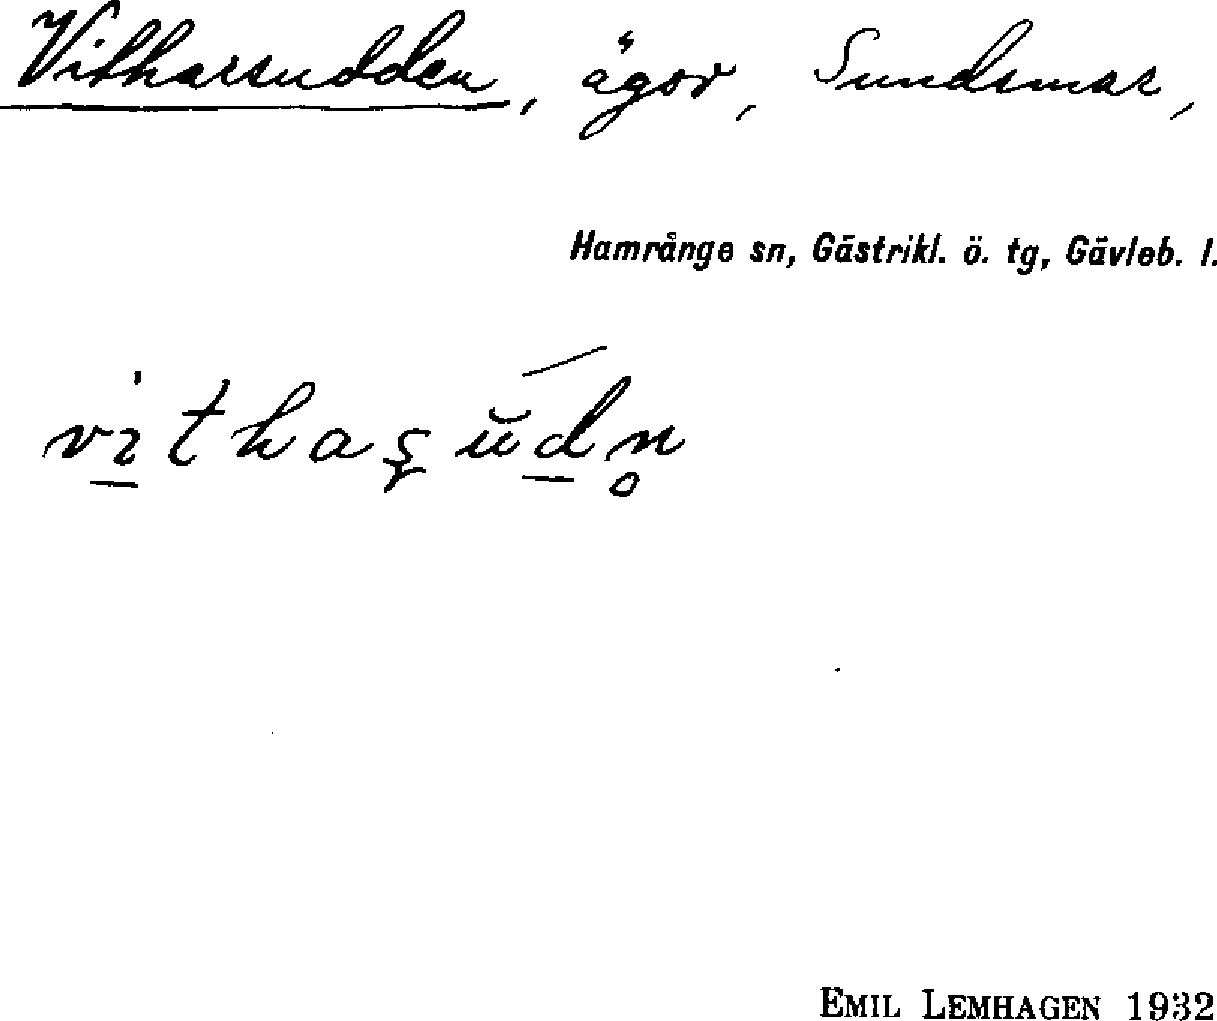 Vitharsudden, ägor, Sundsmar,
Hamrånge sn, Gästrikl. ö. tg, Gävleb. l.
EMIL LEMHAGEN 1932